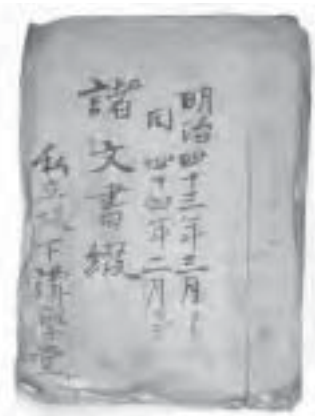 明治四十三年三月ヨリ
同 四十四年二月マデ
諸文書綴
私立坂下講習堂